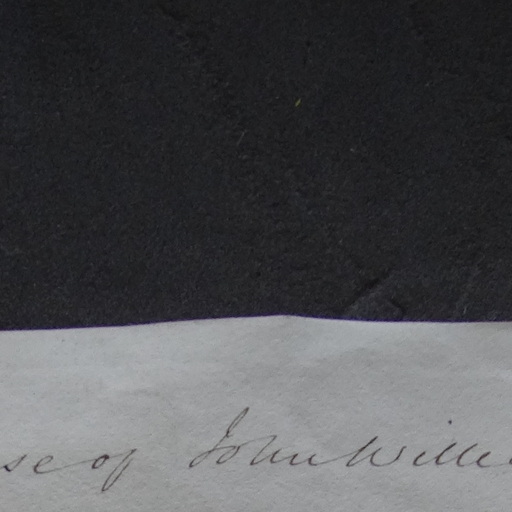 se of John Wille